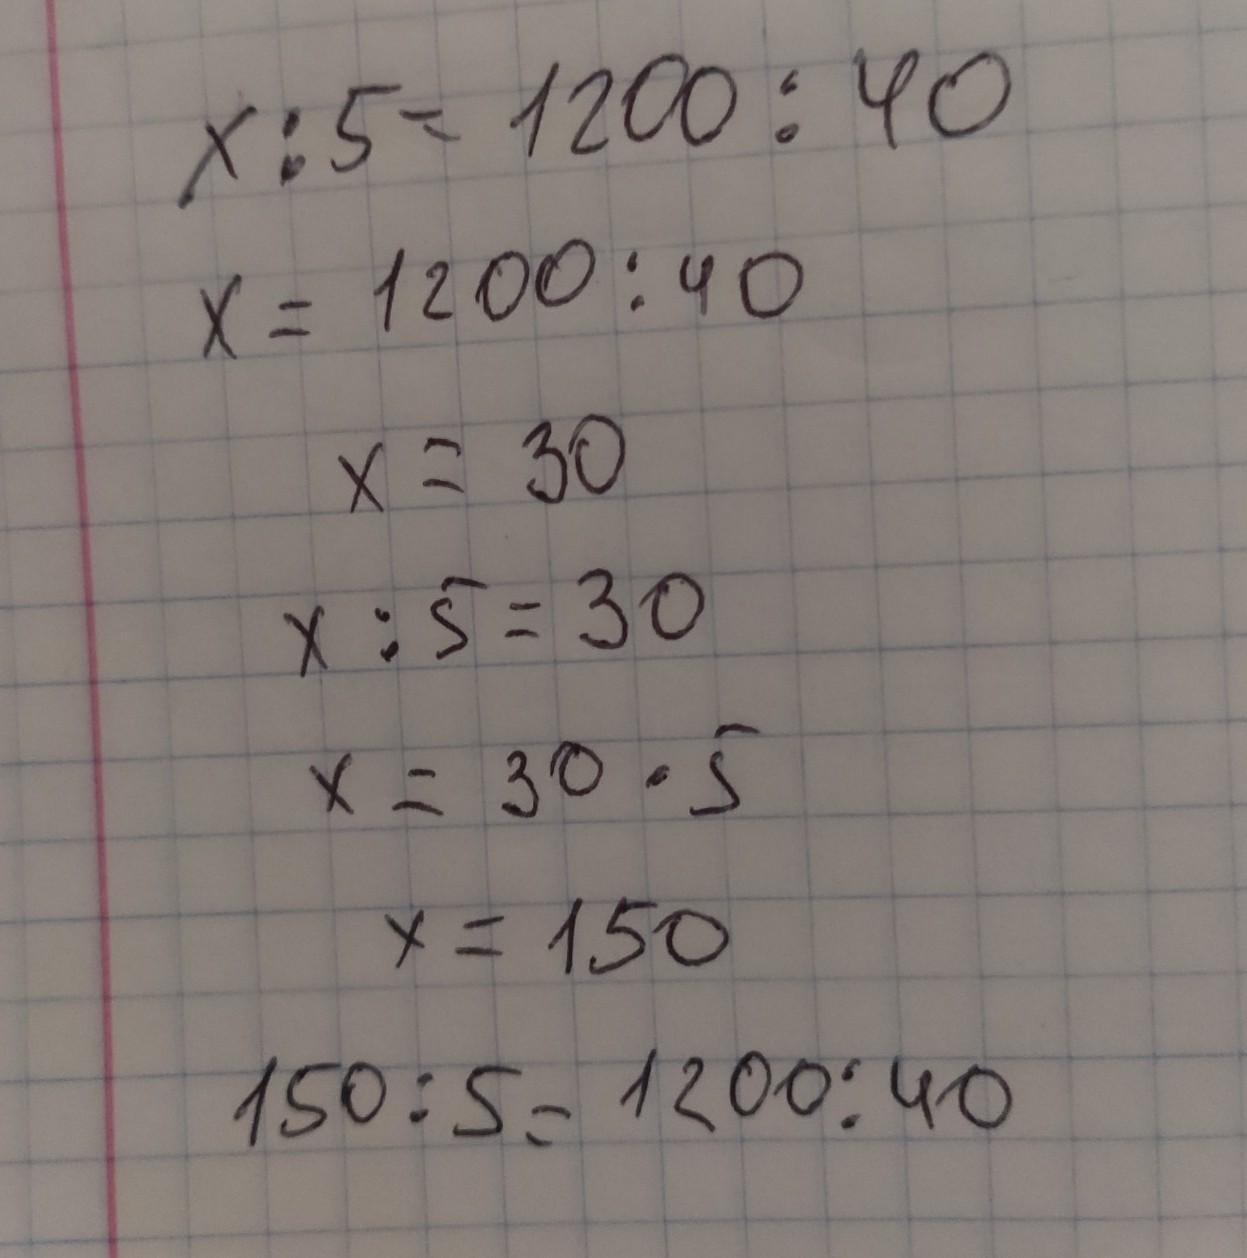 x:5=1200:40
x=1200:40
x=30
x:5=30
x=30·5
x=150
150:5=1200:40